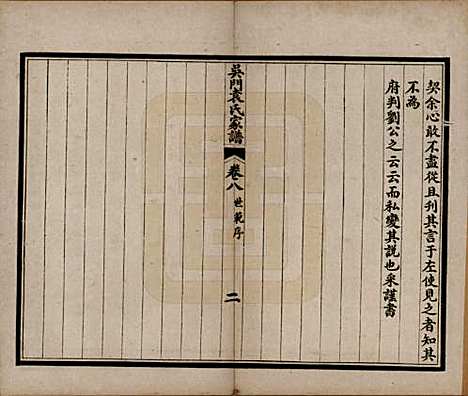 契余心敢不盡從且刊其言于左使見之者知其
不為
府判劉公之云云而私變其說也采謹書
吳門袁氏家譜 卷八 世範序 二